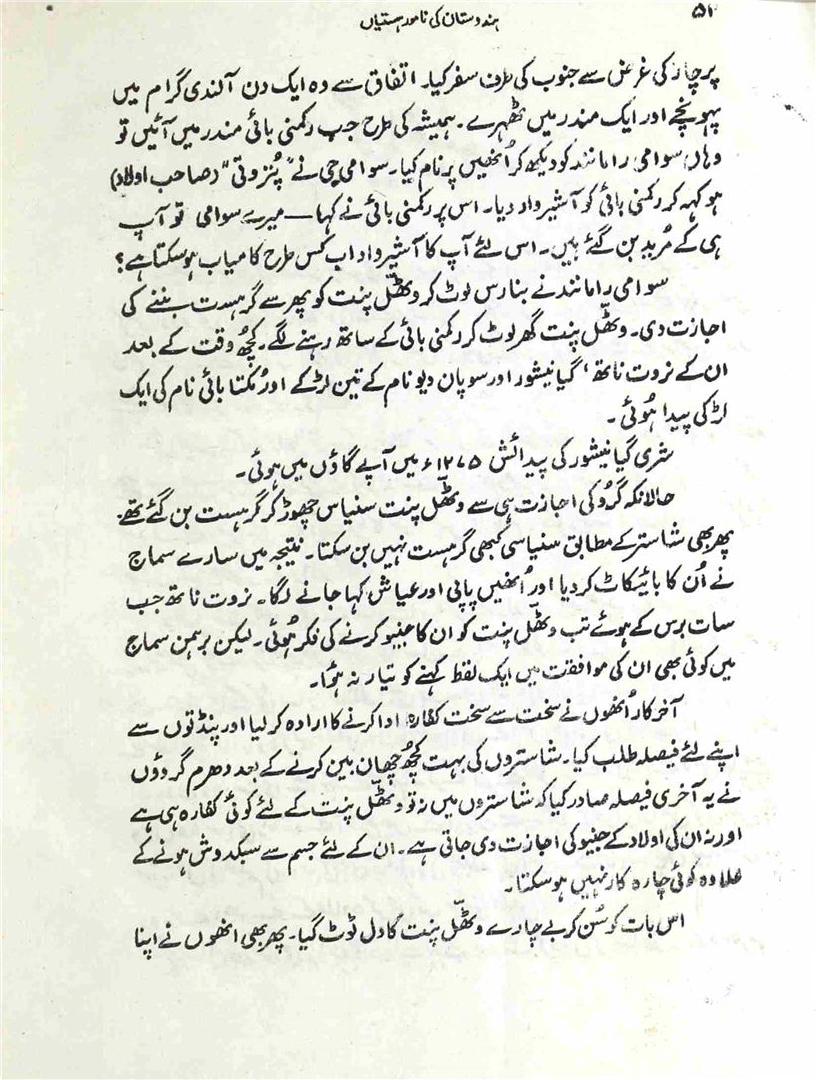 ۵۲
ہندوستان کی نامور ہستیاں
پرچار کی غرض سے جنوب کی طرف سفر کیا۔ اتفاق سے وہ ایک دن آلندی گرام میں
پہونچے اور ایک مندر میں ٹھہرے۔ ہمیشہ کی طرح جب رکمنی بائی مندر میں آئیں تو
وہاں سوامی رامانند کو دیکھ کر اُنھیں پرنام کیا۔ سوامی جی نے "پُتروتی" (صاحب اولاد)
ہو کہہ کر رکمنی بائی کو آشیرواد دیا۔ اس پر رکمنی بائی نے کہا — میرے سوامی تو آپ
ہی کے مُرید بن گئے ہیں۔ اس لئے آپ کا آشیرواد اب کس طرح کامیاب ہو سکتا ہے؟
سوامی رامانند نے بنارس لوٹ کر وٹھّل پنت کو پھر سے گرہست بننے کی
اجازت دی۔ وٹھّل پنت گھر لوٹ کر رکمنی بائی کے ساتھ رہنے لگے۔ کچھ وقت کے بعد
ان کے نروت ناتھ، گیانیشور اور سوپان دیو نام کے تین لڑکے اور مُکتا بائی نام کی ایک
لڑکی پیدا ہُوئی۔
شری گیانیشور کی پیدائش ۱۲۷۵ء میں آپے گاؤں میں ہوئی۔
حالانکہ گرُو کی اجازت ہی سے وٹھّل پنت سنیاس چھوڑ کر گرہست بن گئے تھے۔
پھر بھی شاستر کے مطابق سنیاسی کبھی گرہست نہیں بن سکتا۔ نتیجہ میں سارے سماج
نے اُن کا بائیکاٹ کر دیا اور اُنھیں پاپی اور عیاش کہا جانے لگا۔ نروت ناتھ جب
سات برس کے ہوئے تب وٹھّل پنت کو ان کا جنیو کرنے کی فکر ہُوئی۔ لیکن برہمن سماج
میں کوئی بھی ان کی موافقت میں ایک لفظ کہنے کو تیار نہ ہُوا۔
آخر کار اُنھوں نے سخت سے سخت کفّارہ ادا کرنے کا ارادہ کر لیا اور پنڈتوں سے
اپنے لئے فیصلہ طلب کیا۔ شاستروں کی بہت کچھ چھان بین کرنے کے بعد دھرم گروؤں
نے یہ آخری فیصلہ صادر کیا کہ شاستروں میں نہ تو وٹھّل پنت کے لئے کوئی کفارہ ہی ہے
اور نہ ان کی اولاد کے جنیو کی اجازت دی جاتی ہے۔ ان کے لئے جسم سے سبکدوش ہونے کے
علاوہ کوئی چارہ کار نہیں ہو سکتا۔
اس بات کو سُن کر بے چارے وٹھّل پنت کا دل ٹوٹ گیا۔ پھر بھی انھوں نے اپنا